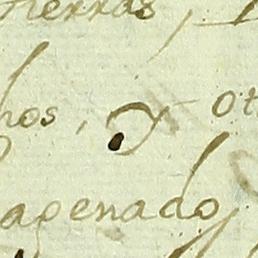 tierras,
hos, y ot
agenado